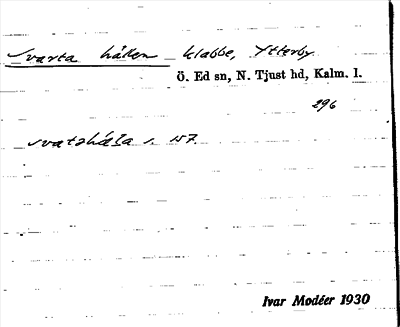 Svarta hålen klabbe, Ytterby
Ö. Ed sn, N. Tjust hd, Kalm. l.
296
svatahåla s. 157.
Ivar Modéer 1930